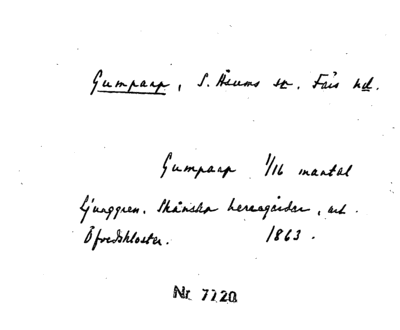 Gumparp, S. Åsums sn. Färs hd.
Gumparp 1/16 mantal
Ljunggren. Skånska herregårdar, art.
Öfvedskloster. 1863.
Nr 7720